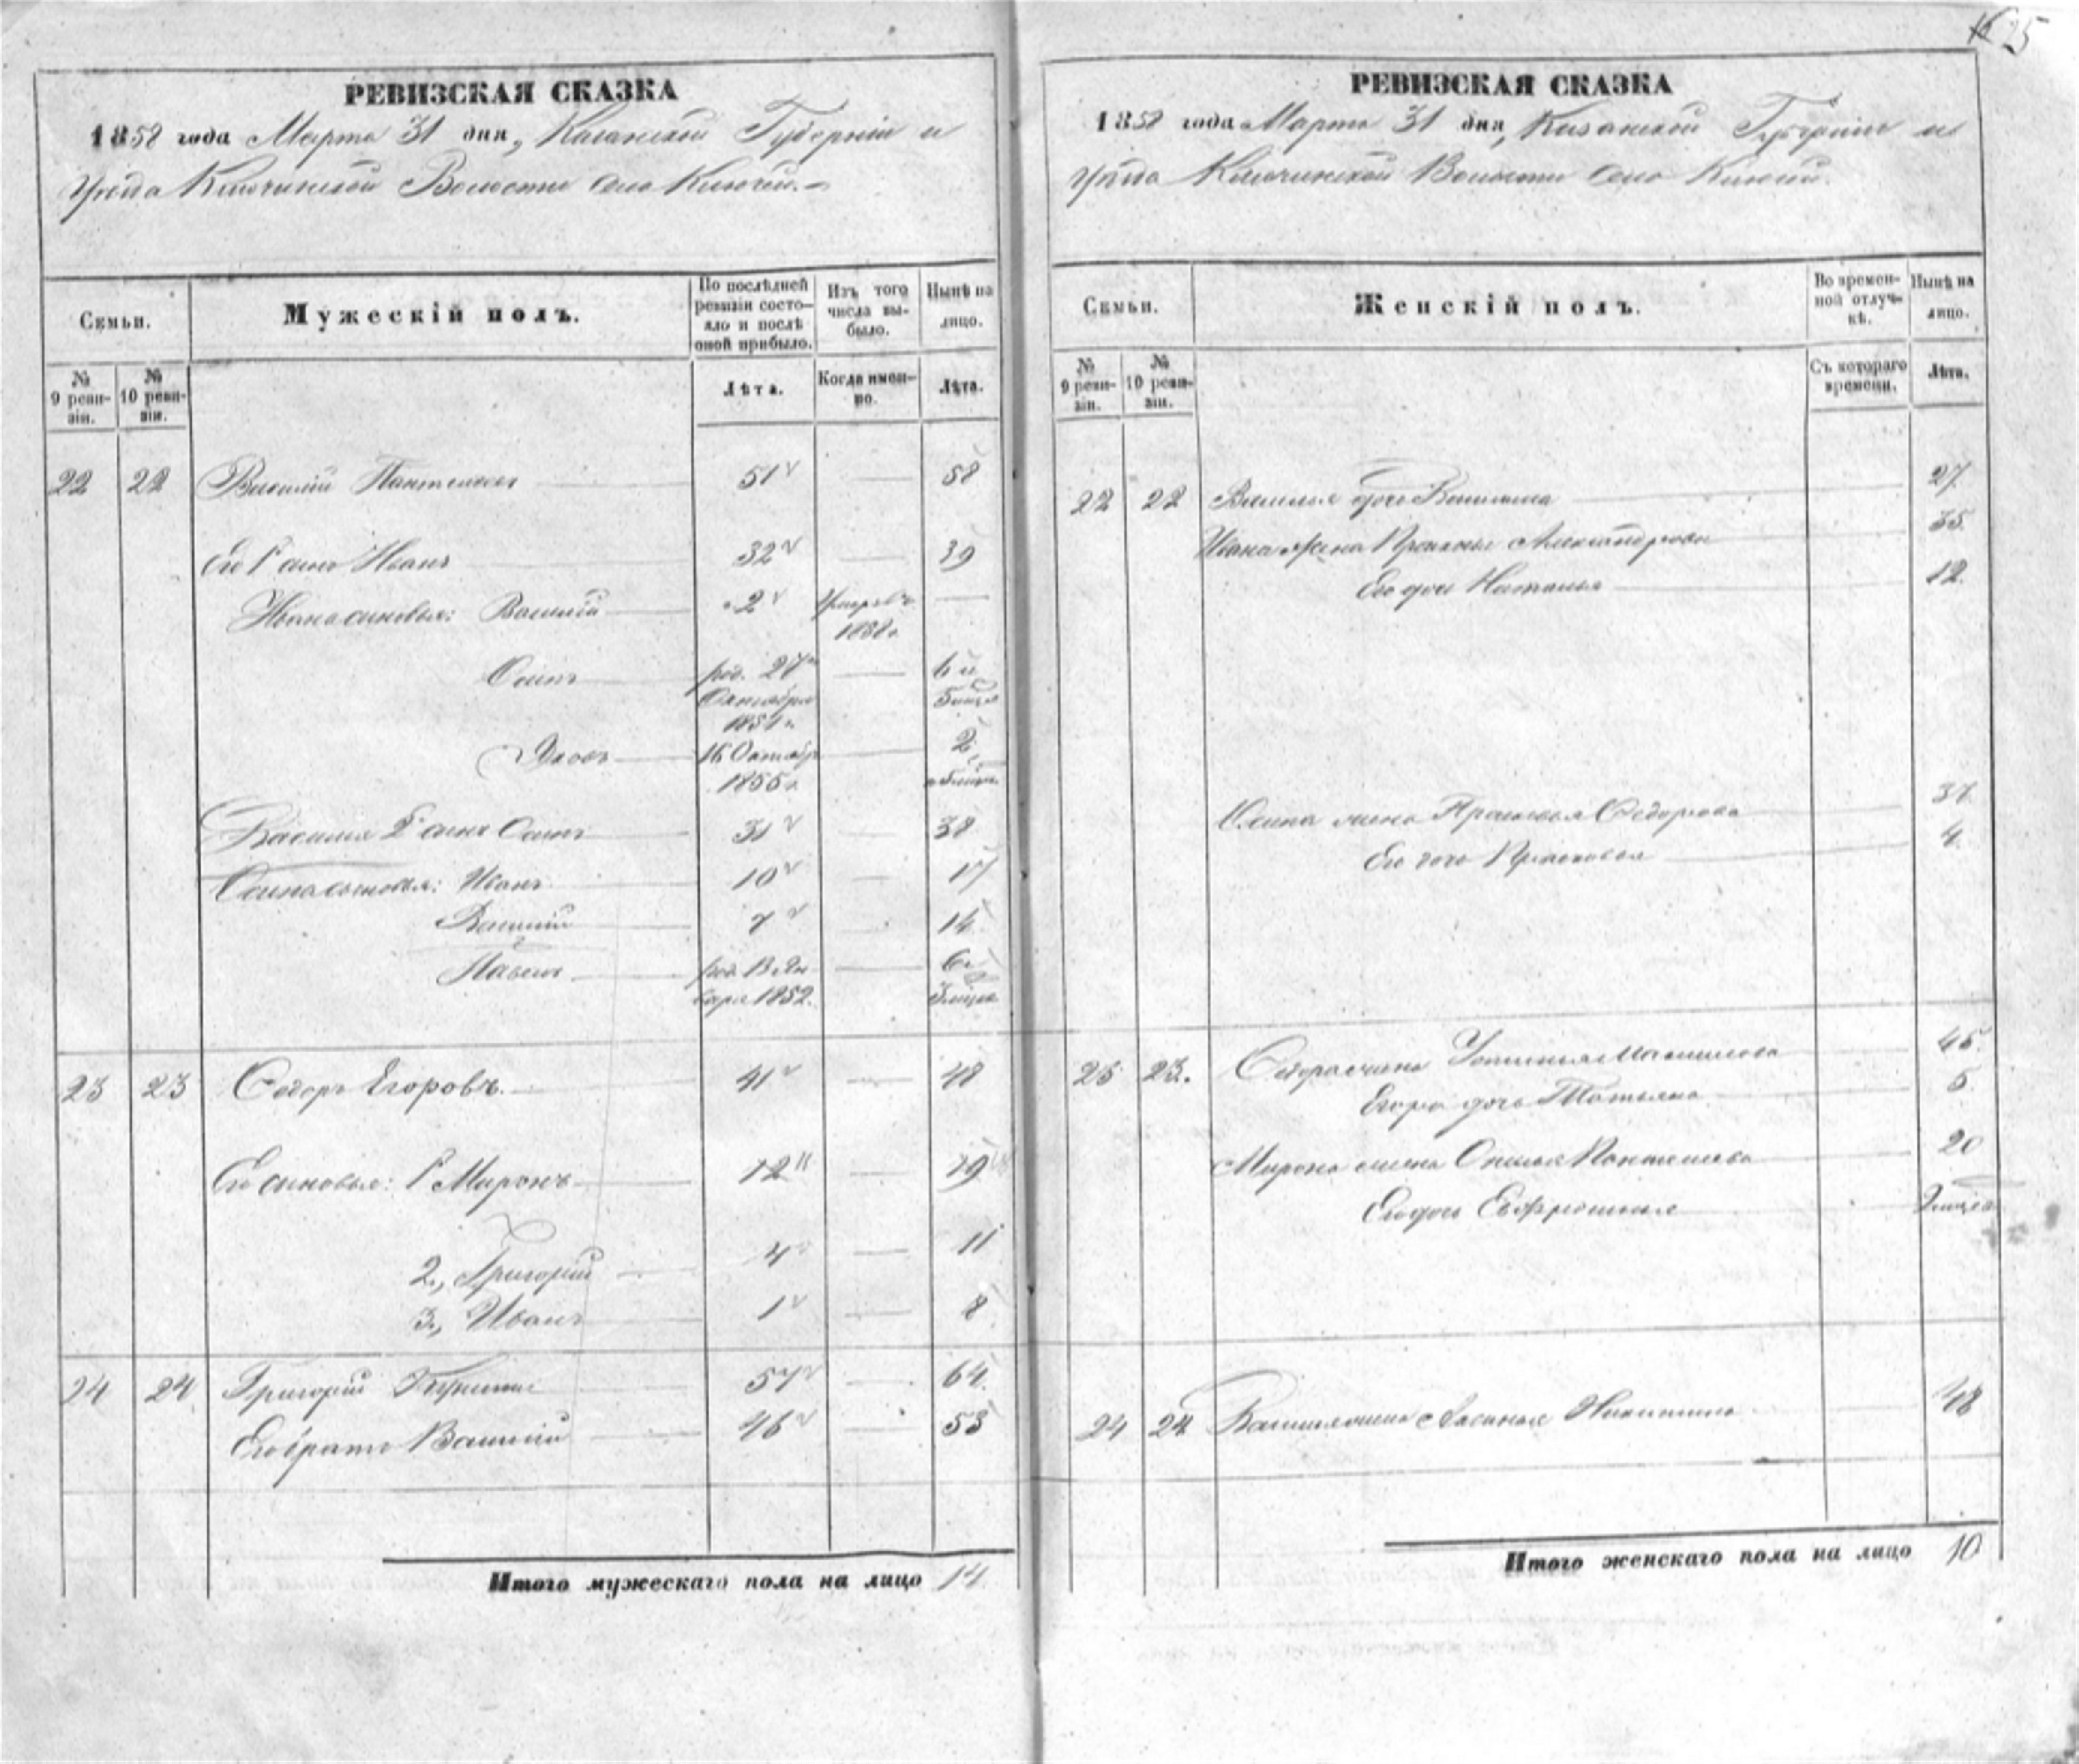 25
РЕВИЗСКАЯ СКАЗКА
1858 года Марта 31 дня, Казанской Губернiи и
уѣзда Ключинской Волости села Ключей.
Семьи.
Мужескiй полъ.
По послѣдней ревизiи состо-
яло и послѣ
оной прибыло.
Изъ того
числа вы-
было.
Нынѣ на
лицо.
№
9 реви-
зiи.
№
10 реви-
зiи.
Лѣта.
Когда имен-
но.
Лѣта.
22 22 Василiй 51 — 58
Его 1й сынъ Иванъ 32 — 39
Ивана сыновья: Василiй 2 —
Осипъ род. 27 — 6 и
Октября 5 мѣся
1851 г.
Яковъ 16 Октябр — 2
1855 г.
Василья 2й сынъ Осипъ 31 — 38
Осипа сыновья: Иванъ 10 — 17
Василiй 7 — 14
Павелъ род. 13 Ян — 6 и
варя 1852.
23 23 Ѳедоръ Егоровъ. 41 — 48
Его сыновья: 1й Миронъ 12 — 19
2., Григорiй 4 — 11
3., Иванъ 1 — 8
24 24 Григорiй 57 — 64
Его братъ Василiй 46 — 53
Итого мужескаго пола на лицо 14
РЕВИЗСКАЯ СКАЗКА
1858 года Марта 31 дня, Казанской Губернiи и
уѣзда Ключинской Волости села Ключей.
Семьи.
Женскiй полъ.
Во времен-
ной отлуч-
кѣ.
Нынѣ на
лицо.
№
9 реви-
зiи.
№
10 реви-
зiи.
Съ котораго
времени.
Лѣта.
22 22 Василья дочь 27
Ивана жена Александрова 35
Его дочь Наталья 12
Осипа жена Ѳедорова 37
Его дочь Прасковья 4
23 23. Ѳедора жена 45
Егора дочь Татьяна 5
Мирона жена 20
Его дочь Евфросинья
24 24 Василья жена Аксинья Никитина 48
Итого женскаго пола на лицо 10